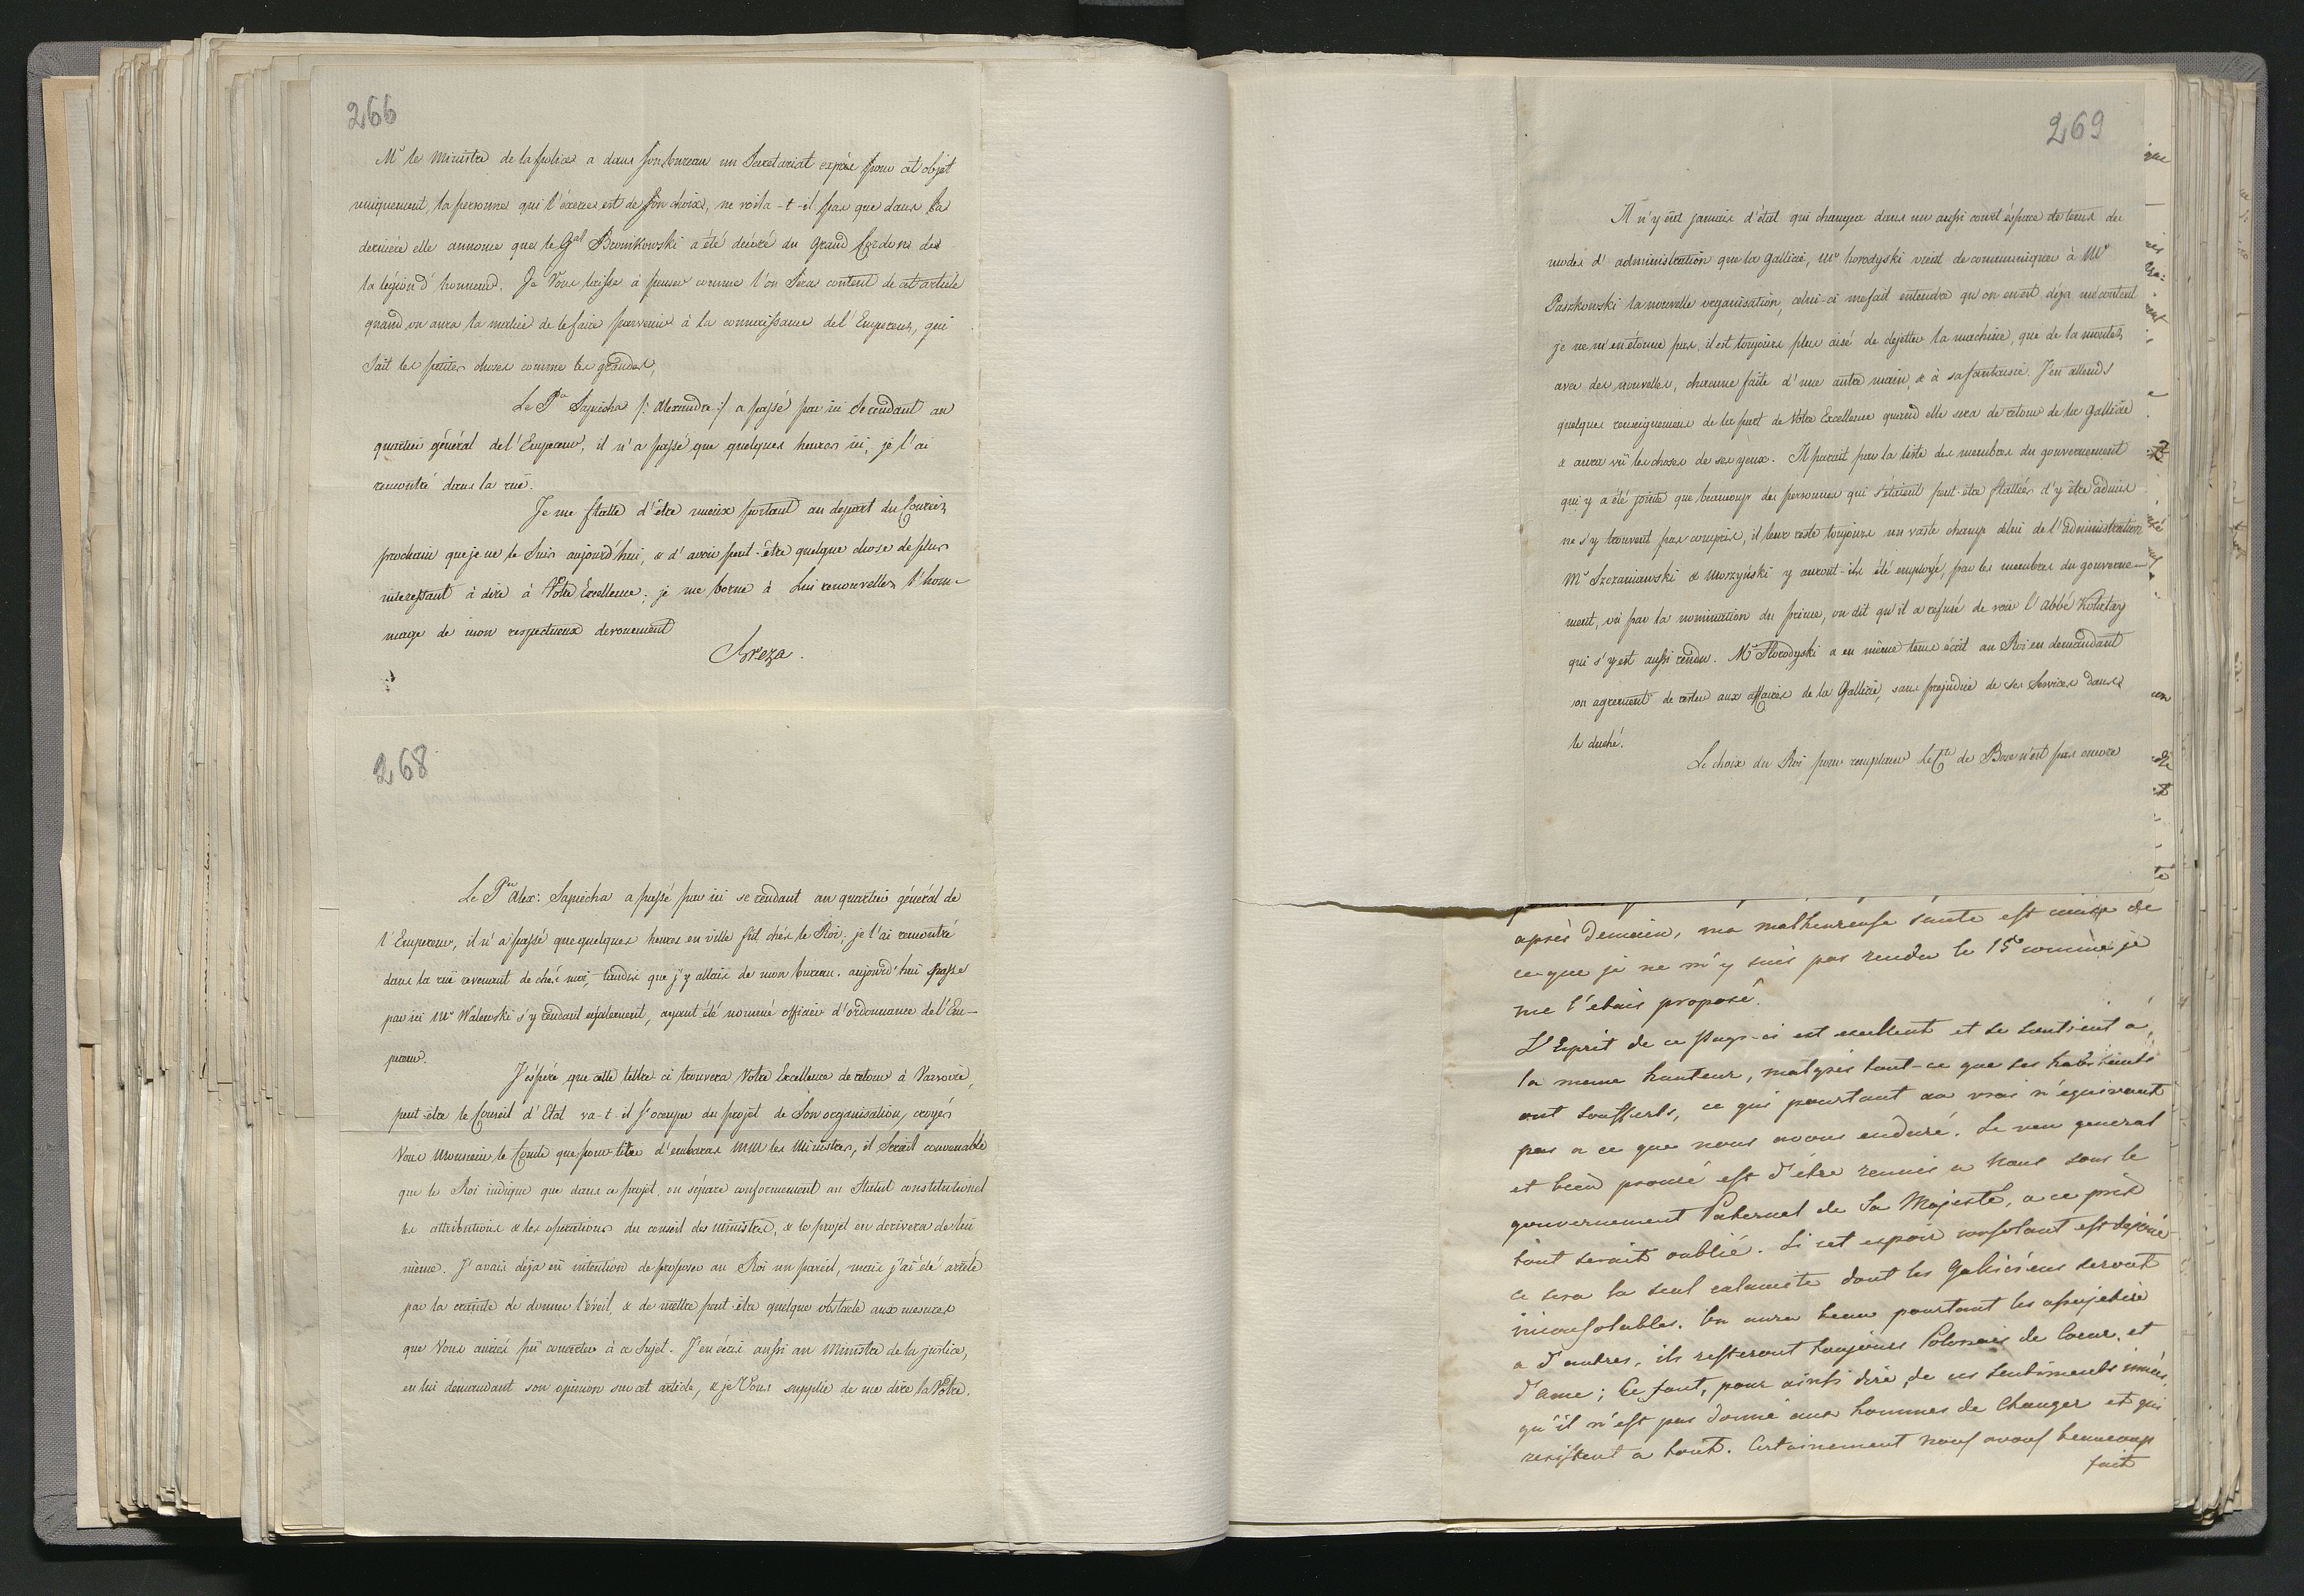 266
Mr le Ministre de la police a dans son bureau un Secretariat exprès pour cet objet
uniquement, la personne qui l'exerce est de son choix, ne voila-t-il pas que dans la
dernière elle annonce que le Gal Bronikowski a été décoré du Grand Cordon de
la légion d'honneur. Je Vous laisse à penser comme l'on Sera content de cet article
quand on aura la malice de le faire parvenir à la connaissance de l'Empereur, qui
Sait les petites choses comme les grandes.
Le Pce Sapieha /: Alexandre :/ a passé par ici Se rendant au
quartier général de l'Empereur, il n'a passé que quelques heures ici, je l'ai
rencontré dans la rue.
Je me flatte d'être mieux portant au depart du Courier
prochain que je ne le Suis aujourd'hui, & d'avoir peut-être quelque chose de plus
interessant à dire à Votre Excellence; je me borne à Lui renouveller l'hom-
mage de mon respectueux devouement
Breza.
268
Le Pce Alex: Sapieha a passé par ici se rendant au quartier général de
l'Empereur, il n'a passé que quelques heures en ville fut chés le Roi; je l'ai rencontré
dans la rue revenant de chés moi, tandis que j'y allais de mon bureau. aujourd'hui passe
par ici Mr Walewski s'y rendant également, ayant été nommé officier d'ordonnance de l'Em-
pereur.
J'éspère que cette lettre-ci trouvera Votre Excellence de retour à Varsovie,
peut-être le Conseil d'Etat va-t-il s'occuper du projet de Son organisation, croyés
Vous Monsieur le Comte que pour tirer d'embaras MM les Ministres, il Serait convenable
que le Roi indique que dans ce projet on sépare conformement au Statut constitutionel
les attributions & les operations du conseil des ministres, & le projet en derivera de lui
même. J'avais déja eû intention de proposer au Roi un pareil, mais j'ai été arrêté
par la crainte de donner l'éveil, & de mettre peut-être quelque obstacle aux mesures
que Vous auriés pû concerter à ce Sujet. J'en écris aussi au Ministre de la justice,
en lui demandant son opinion sur cet article, & je Vous supplie de me dire la Vôtre.
269
Il n'y eut jamais d'état qui changea dans un aussi court éspace de tems de
modes d'administration que la Gallicie, Mr horodyski vient de communiquer à Mr
Paszkowski la nouvelle organisation, celui-ci me fait entendre qu'on en est déja mécontent
je ne m'en étonne pas, il est toujours plus aisé de dejetter la machine, que de la monter
avec des nouvelles, chacune faite d'une autre main, & à sa fantaisie. J'en attends
quelques renseignemens de la part de Votre Excellence quand elle sera de retour de la Gallicie
& aura vû les choses de ses yeux. Il parait par la liste des membres du gouvernement
qui y a été jointe que beaucoup des personnes qui s'étaient peut-être flattées d'y être admis
ne s'y trouvent pas compris, il leur reste toujours un vaste champ celui de l'administration
Mr Szczaniawski & Morzyński y auront-ils été employé, par les membres du gouverne-
ment, ou par la nomination du prince, on dit qu'il a refusé de voir l'abbé Kołłątay
qui s'y est aussi rendu. Mr Horodyski a en même tems écrit au Roi en demandant
son agrement de rester aux affaires de la Gallicie, sans prejudice de ses Services dans
le duché.
Le choix du Roi pour remplacer le Cte de Bose n'est pas encore
après demain, ma malheureuse santé est cause de
ce que je ne m'y suis pas rendu le 15 comme je
me l'étais proposé.
L'Esprit de ce Pays-ci est excellent et se soutient a
la meme hauteur, malgrés tout-ce que ses habitants
ont soufferts, ce qui pourtant au vrai n'equivaut
pas a ce que nous avons enduré. Le vœu general
et bien prouvé est d'être reunis a Nous sous le
gouvernement Paternel de Sa Majesté, a ce prix
tout serait oublié. Si cet espoir consolant est dejoué
ce sera la seul calamité dont les Galliciens seront
inconsolables. On aura beau pourtant les assujetir
a d'autres, ils resteront toujours Polonais de Cœur et
d'ame; Ce sont, pour ainsi dire, de ces sentiments innés,
qu'il n'est pas donné aux hommes de Changer et qui
resistent a tout. Certainement nous avons beaucoup
fait